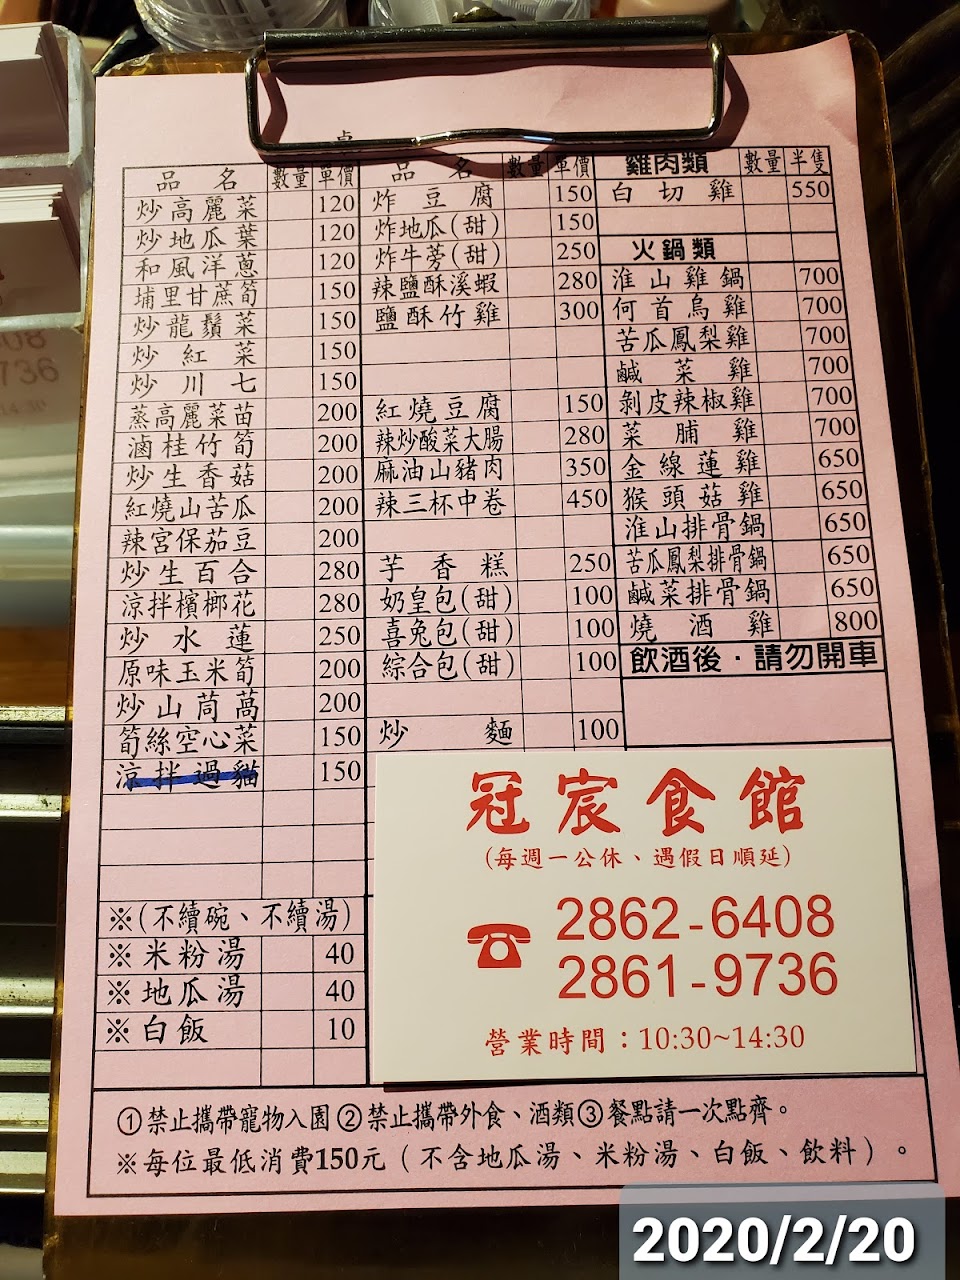 桌
品名 數量 單價
炒高麗菜 120
炒地瓜葉 120
和風洋蔥 120
埔里甘蔗筍 150
炒龍鬚菜 150
炒紅菜 150
炒川七 150
蒸高麗菜苗 200
滷桂竹筍 200
炒生香菇 200
紅燒山苦瓜 200
辣宮保茄豆 200
炒生百合 280
涼拌檳榔花 280
炒水蓮 250
原味玉米筍 200
炒山茼萵 200
筍絲空心菜 150
涼拌過貓 150
※(不續碗、不續湯)
※米粉湯 40
※地瓜湯 40
※白飯 10
品名 數量 單價
炸豆腐 150
炸地瓜(甜) 150
炸牛蒡(甜) 250
辣鹽酥溪蝦 280
鹽酥竹雞 300
紅燒豆腐 150
辣炒酸菜大腸 280
麻油山豬肉 350
辣三杯中卷 450
芋香糕 250
奶皇包(甜) 100
喜兔包(甜) 100
綜合包(甜) 100
炒麵 100
雞肉類 數量 半隻
白切雞 550
火鍋類
淮山雞鍋 700
何首烏雞 700
苦瓜鳳梨雞 700
鹹菜雞 700
剝皮辣椒雞 700
菜脯雞 700
金線蓮雞 650
猴頭菇雞 650
淮山排骨鍋 650
苦瓜鳳梨排骨鍋 650
鹹菜排骨鍋 650
燒酒雞 800
飲酒後·請勿開車
冠宸食館
(每週一公休、遇假日順延)
2862-6408
2861-9736
營業時間：10:30~14:30
①禁止攜帶寵物入園②禁止攜帶外食、酒類③餐點請一次點齊。
※每位最低消費150元（不含地瓜湯、米粉湯、白飯、飲料）。
2020/2/20